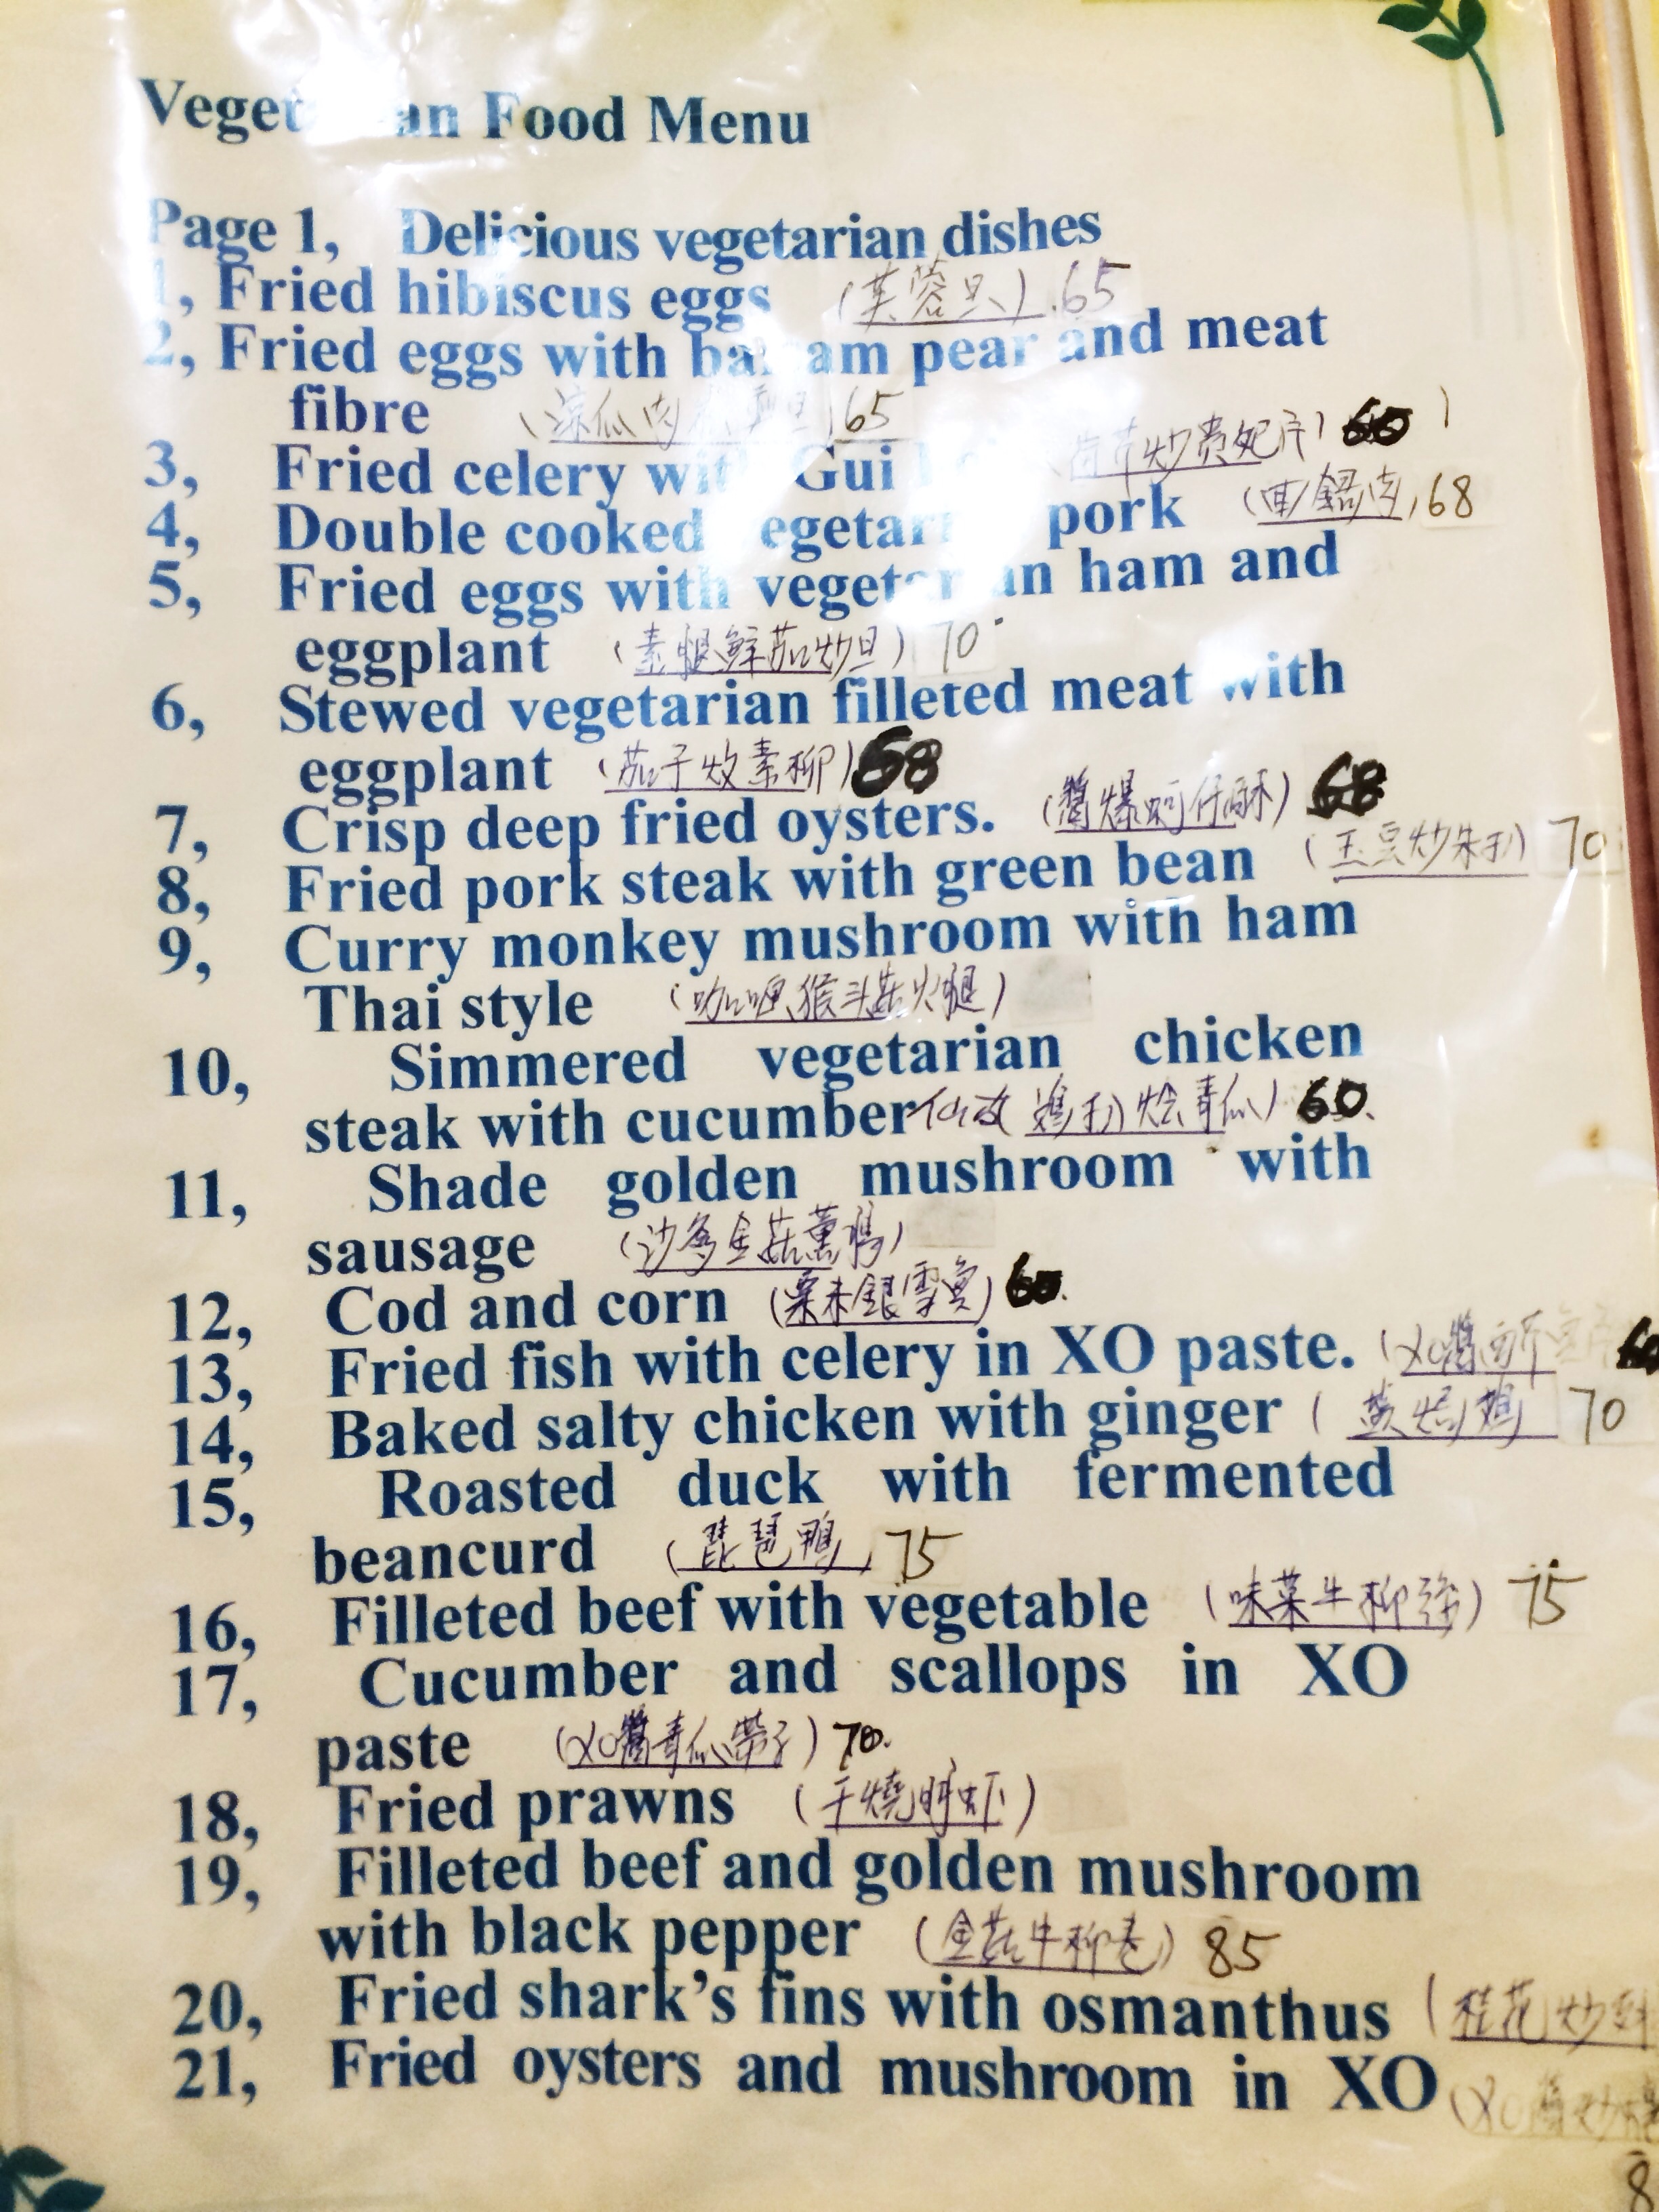 Food Menu
Page 1, Delicious vegetarian dishes
1, Fried hibiscus eggs (芙蓉旦) 65
2, Fried eggs with pear and meat
fibre 65
3, Fried celery Gui 60
4, Double cooked pork (回鍋肉) 68
5, Fried eggs with ham and
eggplant (素腿鮮茄炒旦) 70
6, Stewed vegetarian filleted meat with
eggplant (茄子炆素柳) 68
7, Crisp deep fried oysters. (醬爆蚵仔酥) 68
8, Fried pork steak with green bean (玉豆炒朱扒) 70
9, Curry monkey mushroom with ham
Thai style (咖喱猴头菇火腿)
10, Simmered vegetarian chicken
steak with cucumber 60
11, Shade golden mushroom with
sausage
12, Cod and corn (粟米銀雪魚) 60
13, Fried fish with celery in XO paste. (XO醬
14, Baked salty chicken with ginger 70
15, Roasted duck with fermented
beancurd (琵琶鴨) 75
16, Filleted beef with vegetable (味菜牛柳 75
17, Cucumber and scallops in XO
paste (XO醬青瓜帶子) 70
18, Fried prawns (干燒明虾)
19, Filleted beef and golden mushroom
with black pepper (金菇牛柳卷) 85
20, Fried shark's fins with osmanthus (桂花炒
21, Fried oysters and mushroom in XO (XO醬炒
8